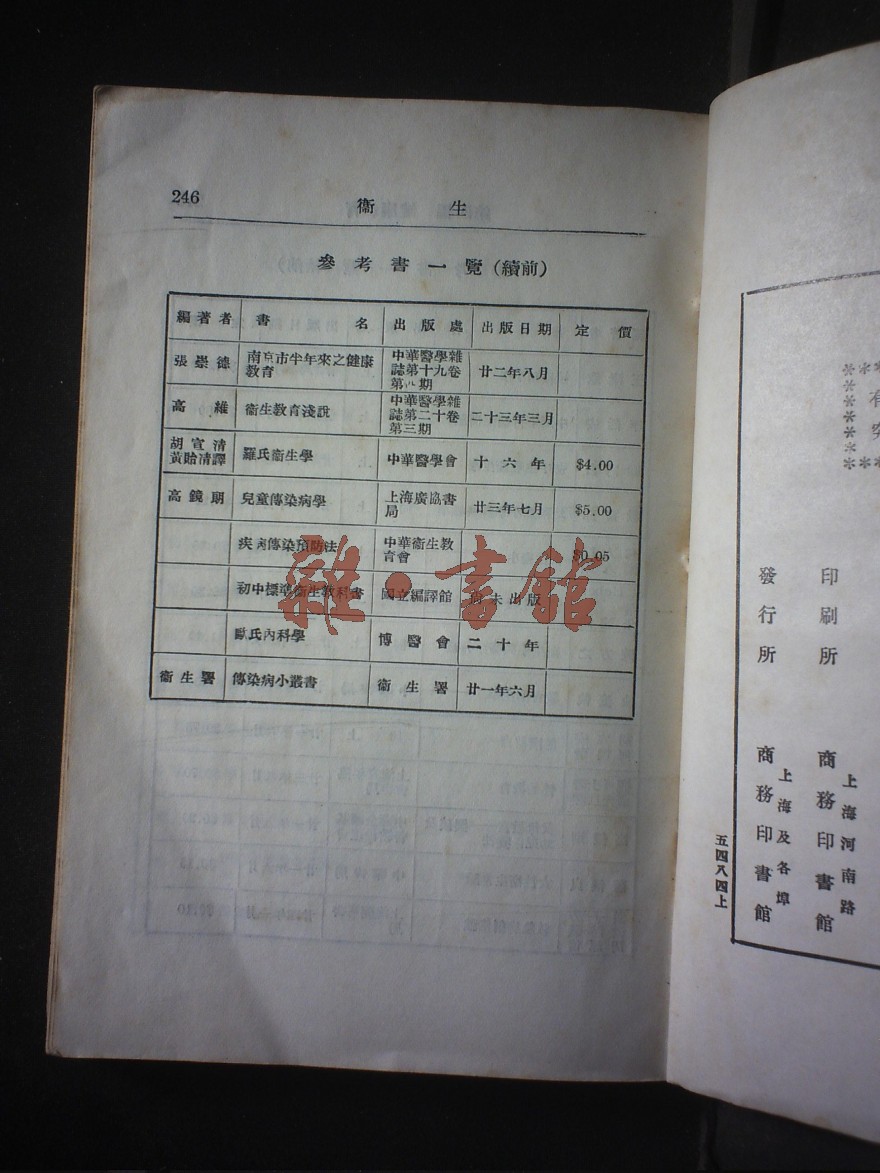 246
衞 生
參考書一覽(續前)
編著者 書名 出版處 出版日期 定價
張崇德 南京市半年來之健康
教育 中華醫學雜
誌第十九卷
第八期 廿二年八月
高維 衞生教育淺說 中華醫學雜
誌第二十卷
第三期 二十三年三月
胡宣清
黃貽清譯 羅氏衞生學 中華醫學會 十六年 $4.00
高鏡朗 兒童傳染病學 上海廣協書
局 廿三年七月 $5.00
疾病傳染預防法 中華衞生教
育會 $0.05
初中標準衞生教科書 國立編譯館 尚未出版
歐氏內科學 博醫會 二十年
衞生署 傳染病小叢書 衞生署 廿一年六月
雜·書館
印刷所 上海河南路
商務印書館
發行所 上海及各埠
商務印書館
五四八四上